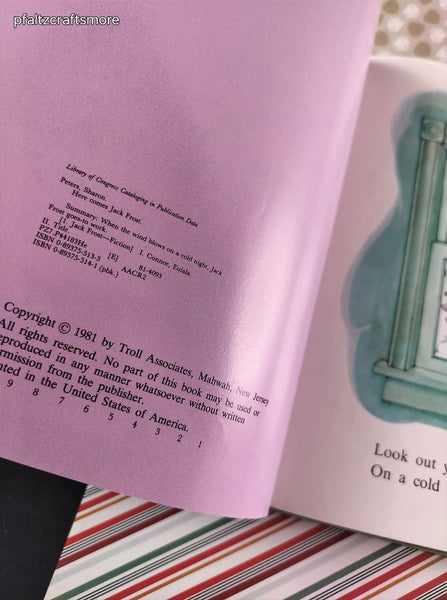 pfaltzcraftsmore
Library of Congress Cataloging in Publication Data
Peters, Sharon.
Here comes Jack Frost.
Summary: When the wind blows on a cold night, Jack
Frost goes to work.
[1. Jack Frost—Fiction] I. Connor, Eulala.
II. Title.
PZ7.P44183He [E] 81-4093
ISBN 0-89375-513-3 AACR2
ISBN 0-89375-514-1 (pbk.)
Copyright © 1981 by Troll Associates, Mahwah, New Jersey
All rights reserved. No part of this book may be used or
eproduced in any manner whatsoever without written
rmission from the publisher.
nted in the United States of America.
9 8 7 6 5 4 3 2 1
Look out y
On a cold